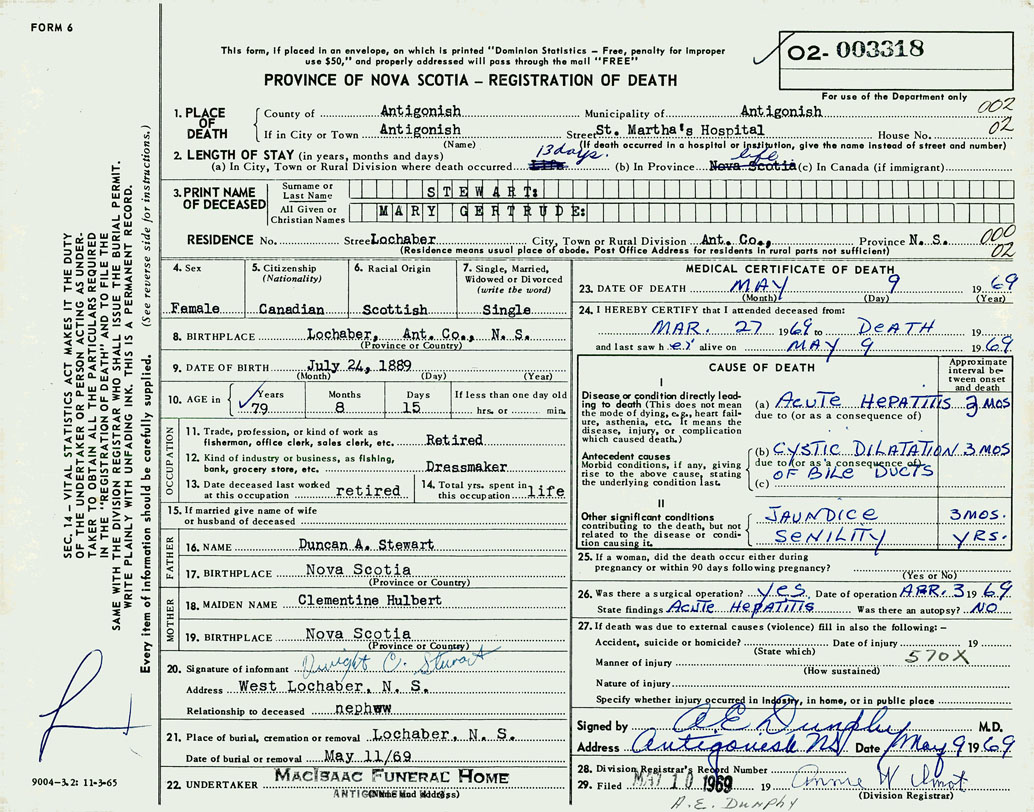 FORM 6
This form, if placed in an envelope, on which is printed "Dominion Statistics – Free, penalty for improper
use $50," and properly addressed will pass through the mail "FREE"
PROVINCE OF NOVA SCOTIA – REGISTRATION OF DEATH
02- 003318
For use of the Department only
1. PLACE OF DEATH
County of Antigonish Municipality of Antigonish 002
If in City or Town Antigonish Street St. Martha's Hospital House No. 02
(Name) (If death occurred in a hospital or institution, give the name instead of street and number)
2. LENGTH OF STAY (in years, months and days) 13 days. life
(a) In City, Town or Rural Division where death occurred Life (b) In Province Nova Scotia (c) In Canada (if immigrant)
3. PRINT NAME OF DECEASED
Surname or Last Name STEWART:
All Given or Christian Names MARY GERTRUDE:
RESIDENCE No. Street Lochaber City, Town or Rural Division Ant. Co., Province N. S. 000
(Residence means usual place of abode. Post Office Address for residents in rural parts not sufficient) 02
4. Sex
Female
5. Citizenship (Nationality)
Canadian
6. Racial Origin
Scottish
7. Single, Married, Widowed or Divorced (write the word)
Single
8. BIRTHPLACE Lochaber, Ant. Co., N. S.
(Province or Country)
9. DATE OF BIRTH July 24, 1889
(Month) (Day) (Year)
10. AGE in Years Months Days If less than one day old
79 8 15 hrs. or min.
OCCUPATION
11. Trade, profession, or kind of work as
fisherman, office clerk, sales clerk, etc. Retired
12. Kind of industry or business, as fishing,
bank, grocery store, etc. Dressmaker
13. Date deceased last worked at this occupation retired
14. Total yrs. spent in this occupation life
15. If married give name of wife
or husband of deceased
FATHER
16. NAME Duncan A. Stewart
17. BIRTHPLACE Nova Scotia
(Province or Country)
MOTHER
18. MAIDEN NAME Clementine Hulbert
19. BIRTHPLACE Nova Scotia
(Province or Country)
20. Signature of informant Dwight C. Stewart
Address West Lochaber, N. S.
Relationship to deceased nephww
21. Place of burial, cremation or removal Lochaber, N. S.
Date of burial or removal May 11/69
22. UNDERTAKER MACISAAC FUNERAL HOME
(Name and Address)
MEDICAL CERTIFICATE OF DEATH
23. DATE OF DEATH MAY 9 1969
(Month) (Day) (Year)
24. I HEREBY CERTIFY that I attended deceased from:
MAR. 27 1969 to DEATH 19
and last saw her alive on MAY 9 1969
CAUSE OF DEATH
Approximate interval between onset and death
I
Disease or condition directly leading to death (This does not mean the mode of dying, e.g., heart failure, asthenia, etc. It means the disease, injury, or complication which caused death.)
(a) ACUTE HEPATITIS 3 MOS
due to (or as a consequence of)
Antecedent causes
Morbid conditions, if any, giving rise to the above cause, stating the underlying condition last.
(b) CYSTIC DILATATION 3 MOS
due to (or as a consequence of)
OF BILE DUCTS
(c)
II
Other significant conditions
contributing to the death, but not related to the disease or condition causing it.
JAUNDICE 3 MOS.
SENILITY YRS.
25. If a woman, did the death occur either during
pregnancy or within 90 days following pregnancy?
(Yes or No)
26. Was there a surgical operation? YES. Date of operation APR. 3 1969.
State findings ACUTE HEPATITIS Was there an autopsy? NO
27. If death was due to external causes (violence) fill in also the following: –
Accident, suicide or homicide? Date of injury 19
(State which) 570X
Manner of injury
(How sustained)
Nature of injury
Specify whether injury occurred in industry, in home, or in public place
Signed by A E Dunphy M.D.
Address Antigonish NS Date May 9 1969
28. Division Registrar's Record Number
29. Filed MAY 10 1969 19 Annie W ilmot
(Division Registrar)
A.E. DUNPHY
SEC. 14 – VITAL STATISTICS ACT MAKES IT THE DUTY
OF THE UNDERTAKER OR PERSON ACTING AS UNDER-
TAKER TO OBTAIN ALL THE PARTICULARS REQUIRED
IN THE "REGISTRATION OF DEATH" AND TO FILE THE
SAME WITH THE DIVISION REGISTRAR WHO SHALL ISSUE THE BURIAL PERMIT.
WRITE PLAINLY WITH UNFADING INK. THIS IS A PERMANENT RECORD.
Every item of information should be carefully supplied. (See reverse side for instructions.)
9004-3.2: 11-3-65